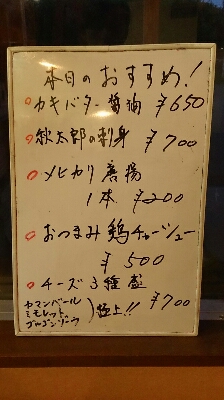 本日のおすすめ!
カキバター醤油 ¥650
秋太郎の刺身 ¥700
メヒカリ唐揚
1本 ¥200
おつまみ鶏チャーシュー
¥500
チーズ3種盛
カマンベール
ミモレット
ゴルゴンゾーラ
)極上!! ¥700